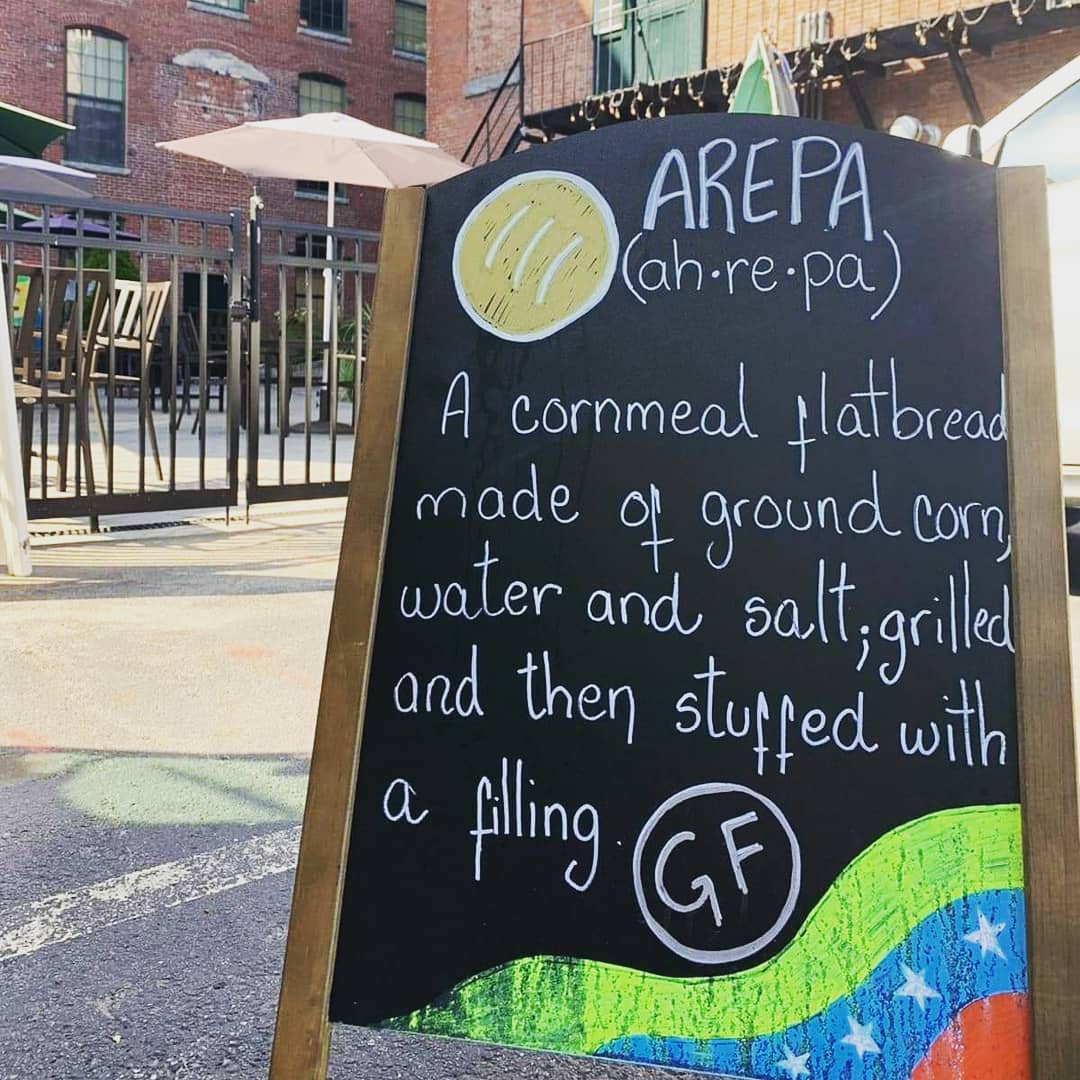 AREPA
(ah·re·pa)
A cornmeal flatbread
made of ground corn,
water and salt; grilled
and then stuffed with
a filling.
GF